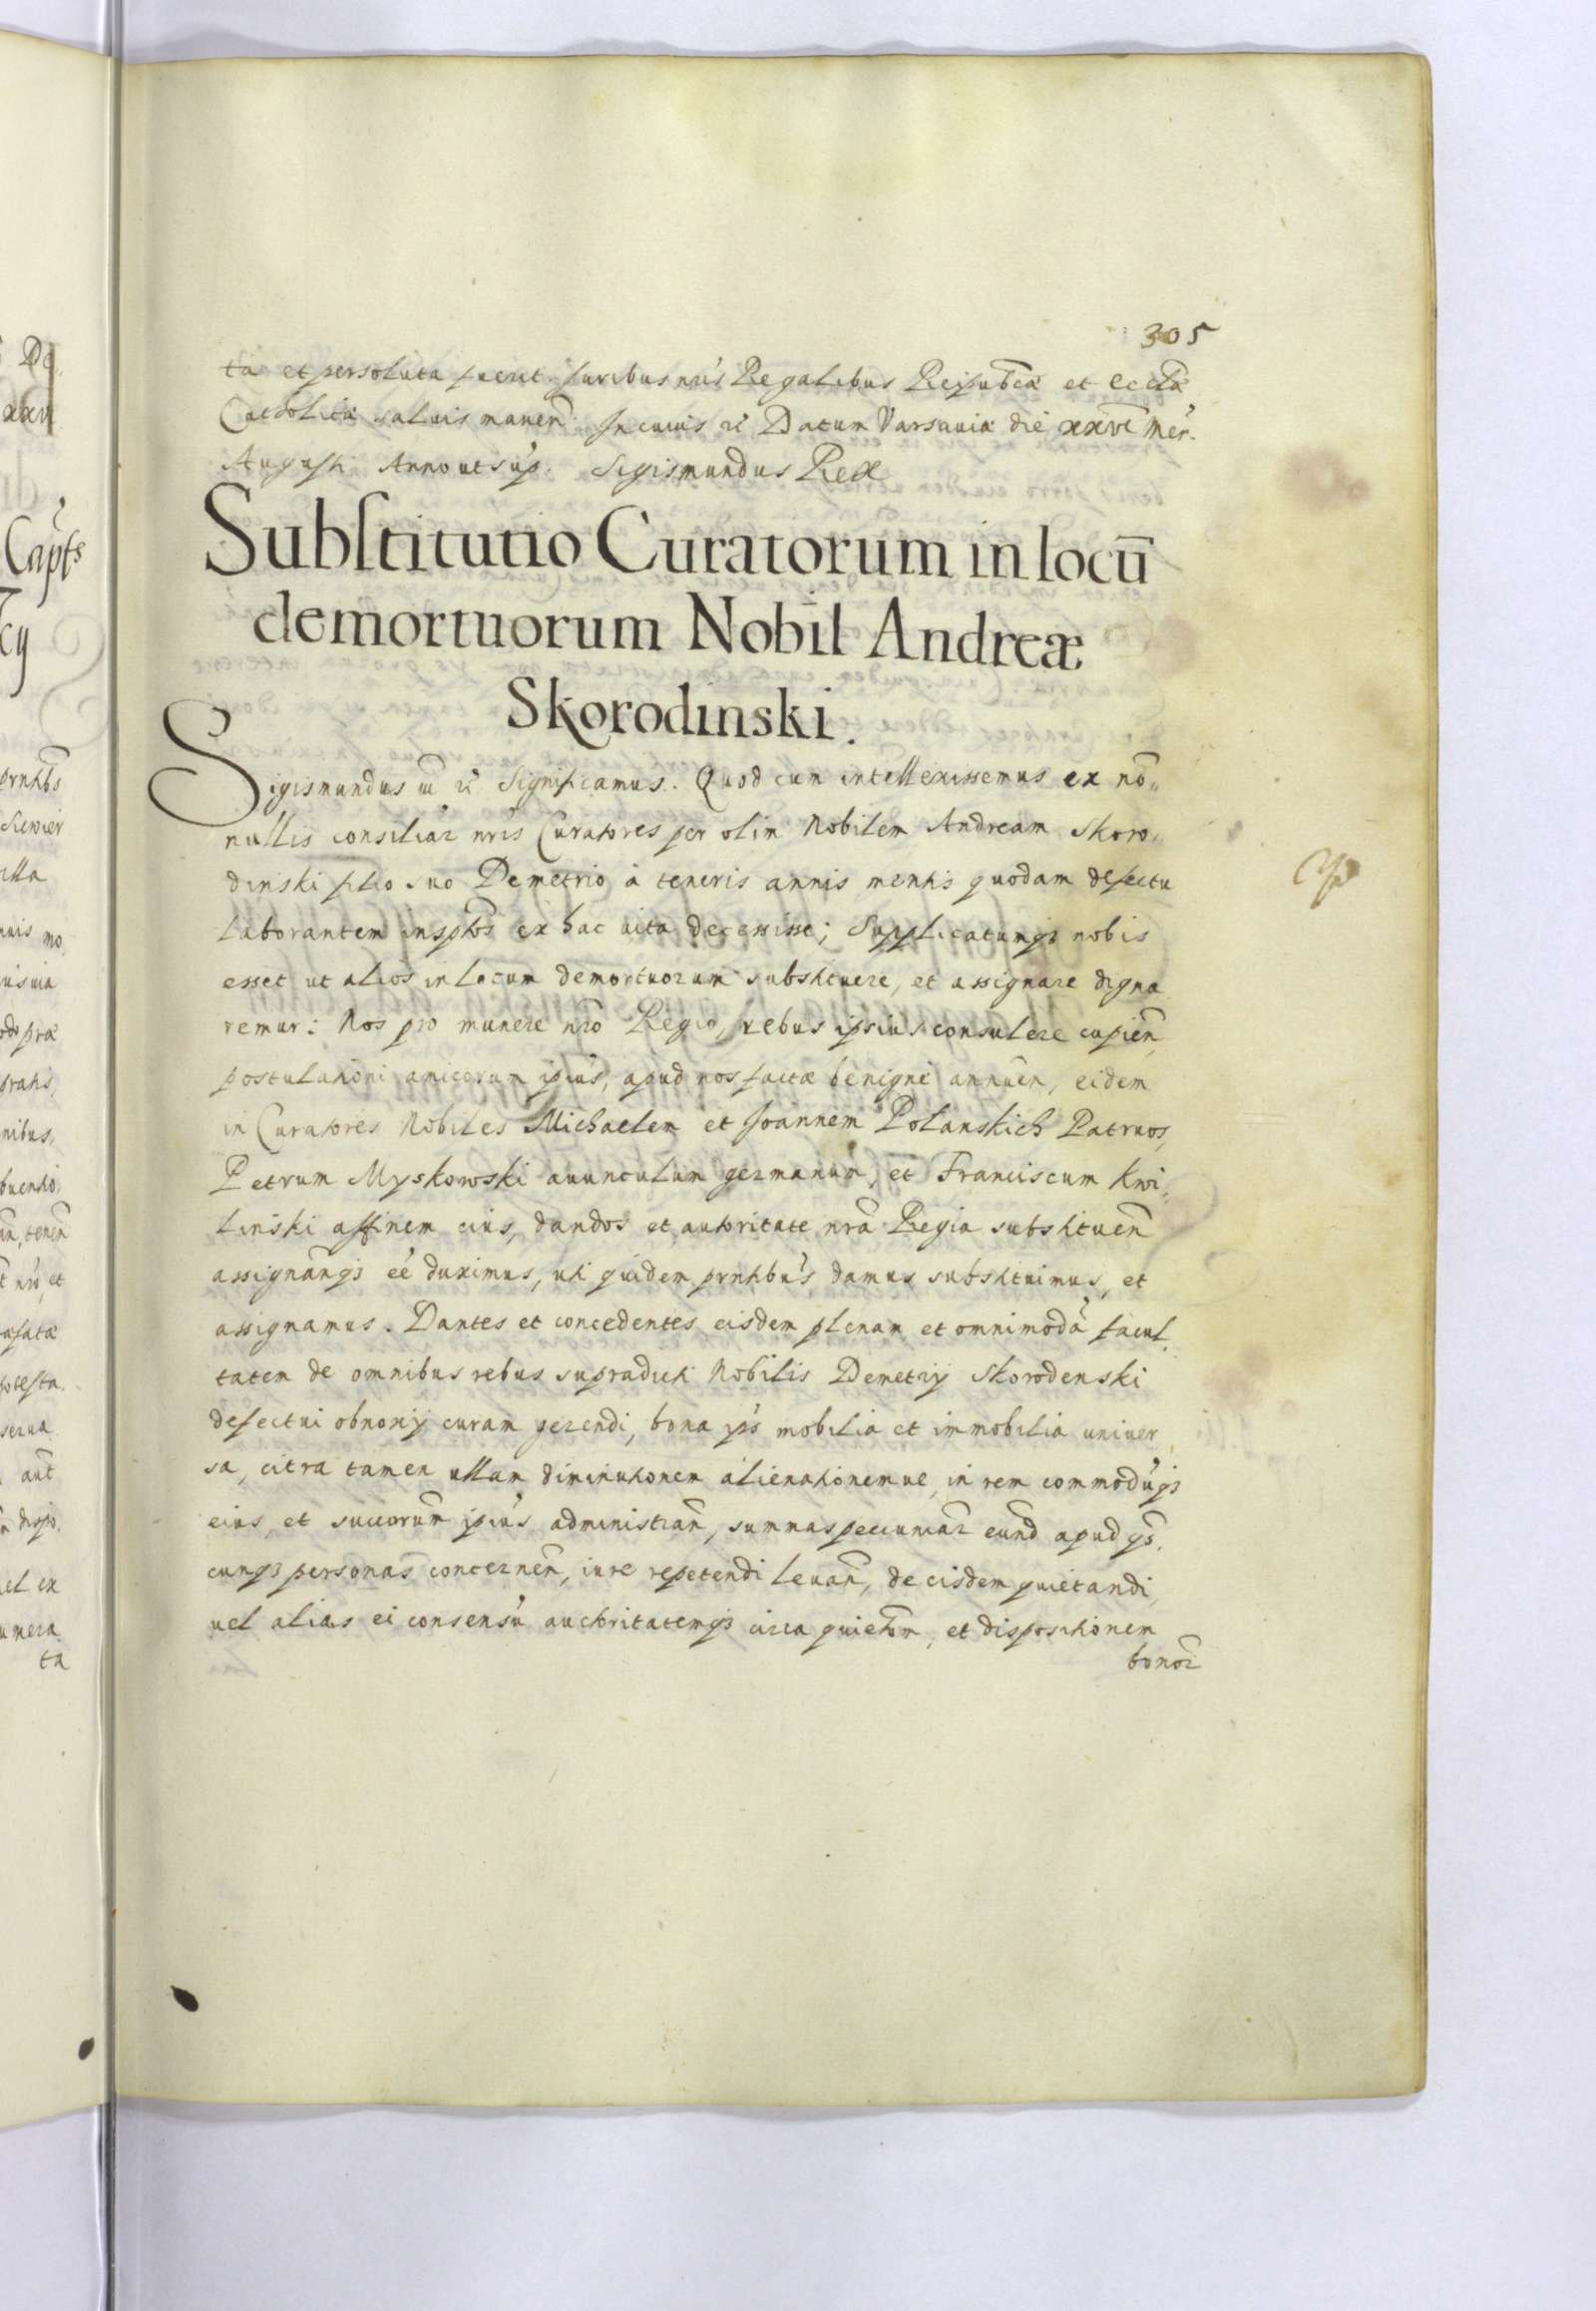 305
ta et persoluta fuerit. Juribus nris Regalibus Reipubcæ et ecctæ
Catholicæ saluis manen. In cuius rei Datum Varsauiæ die xxvi men.
Augusti Anno ut sup. Sigismundus Rex
Substitutio Curatorum in locū
demortuorum Nobil Andreæ
Skorodinski.
Sigismundus III rc Significamus. Quod cum intellexissemus ex no„
nullis consiliar nris Curatores per olim Nobilem Andream Skoro,
dinski filio suo Demetrio à teneris annis mentis quodam defectu
laborantem insptos ex hac uita decessisse; Supplicatumqz nobis
esset ut alios in locum demortuorum substituere, et assignare digna
remur: Nos pro munere nro Regio, rebus ipsius consulere cupien,
postulationi amicorum ipius, apud nos factæ benigne annuen, eidem
in Curatores Nobiles Michaelem et Joannem Polanskich Patruos,
Petrum Myskowski auunculum germanum, et Franciscum Kwi,
linski affinem eius, dandos et autoritate nra Regia substituen
assignanqz eē duximus, uti quidem prntibus damus substituimus, et
assignamus. Dantes et concedentes eisdem plenam et omnimodā facul,
tatem de omnibus rebus supradicti Nobilis Demetrij Skorodenski
defectui obnoxij curam gerendi, bona ips mobilia et immobilia uniuer
sa, citra tamen ullam diminutionem alienationemue, in rem commodūqz
eius, et succorum ipius administran, summas pecuniar eund apud qs,
cunqz personas concernen, iure repetendi leuan, de eisdem quietandi,
uel alias ei consensū auctoritatemqz circa quietōm, et dispositionem
bonor